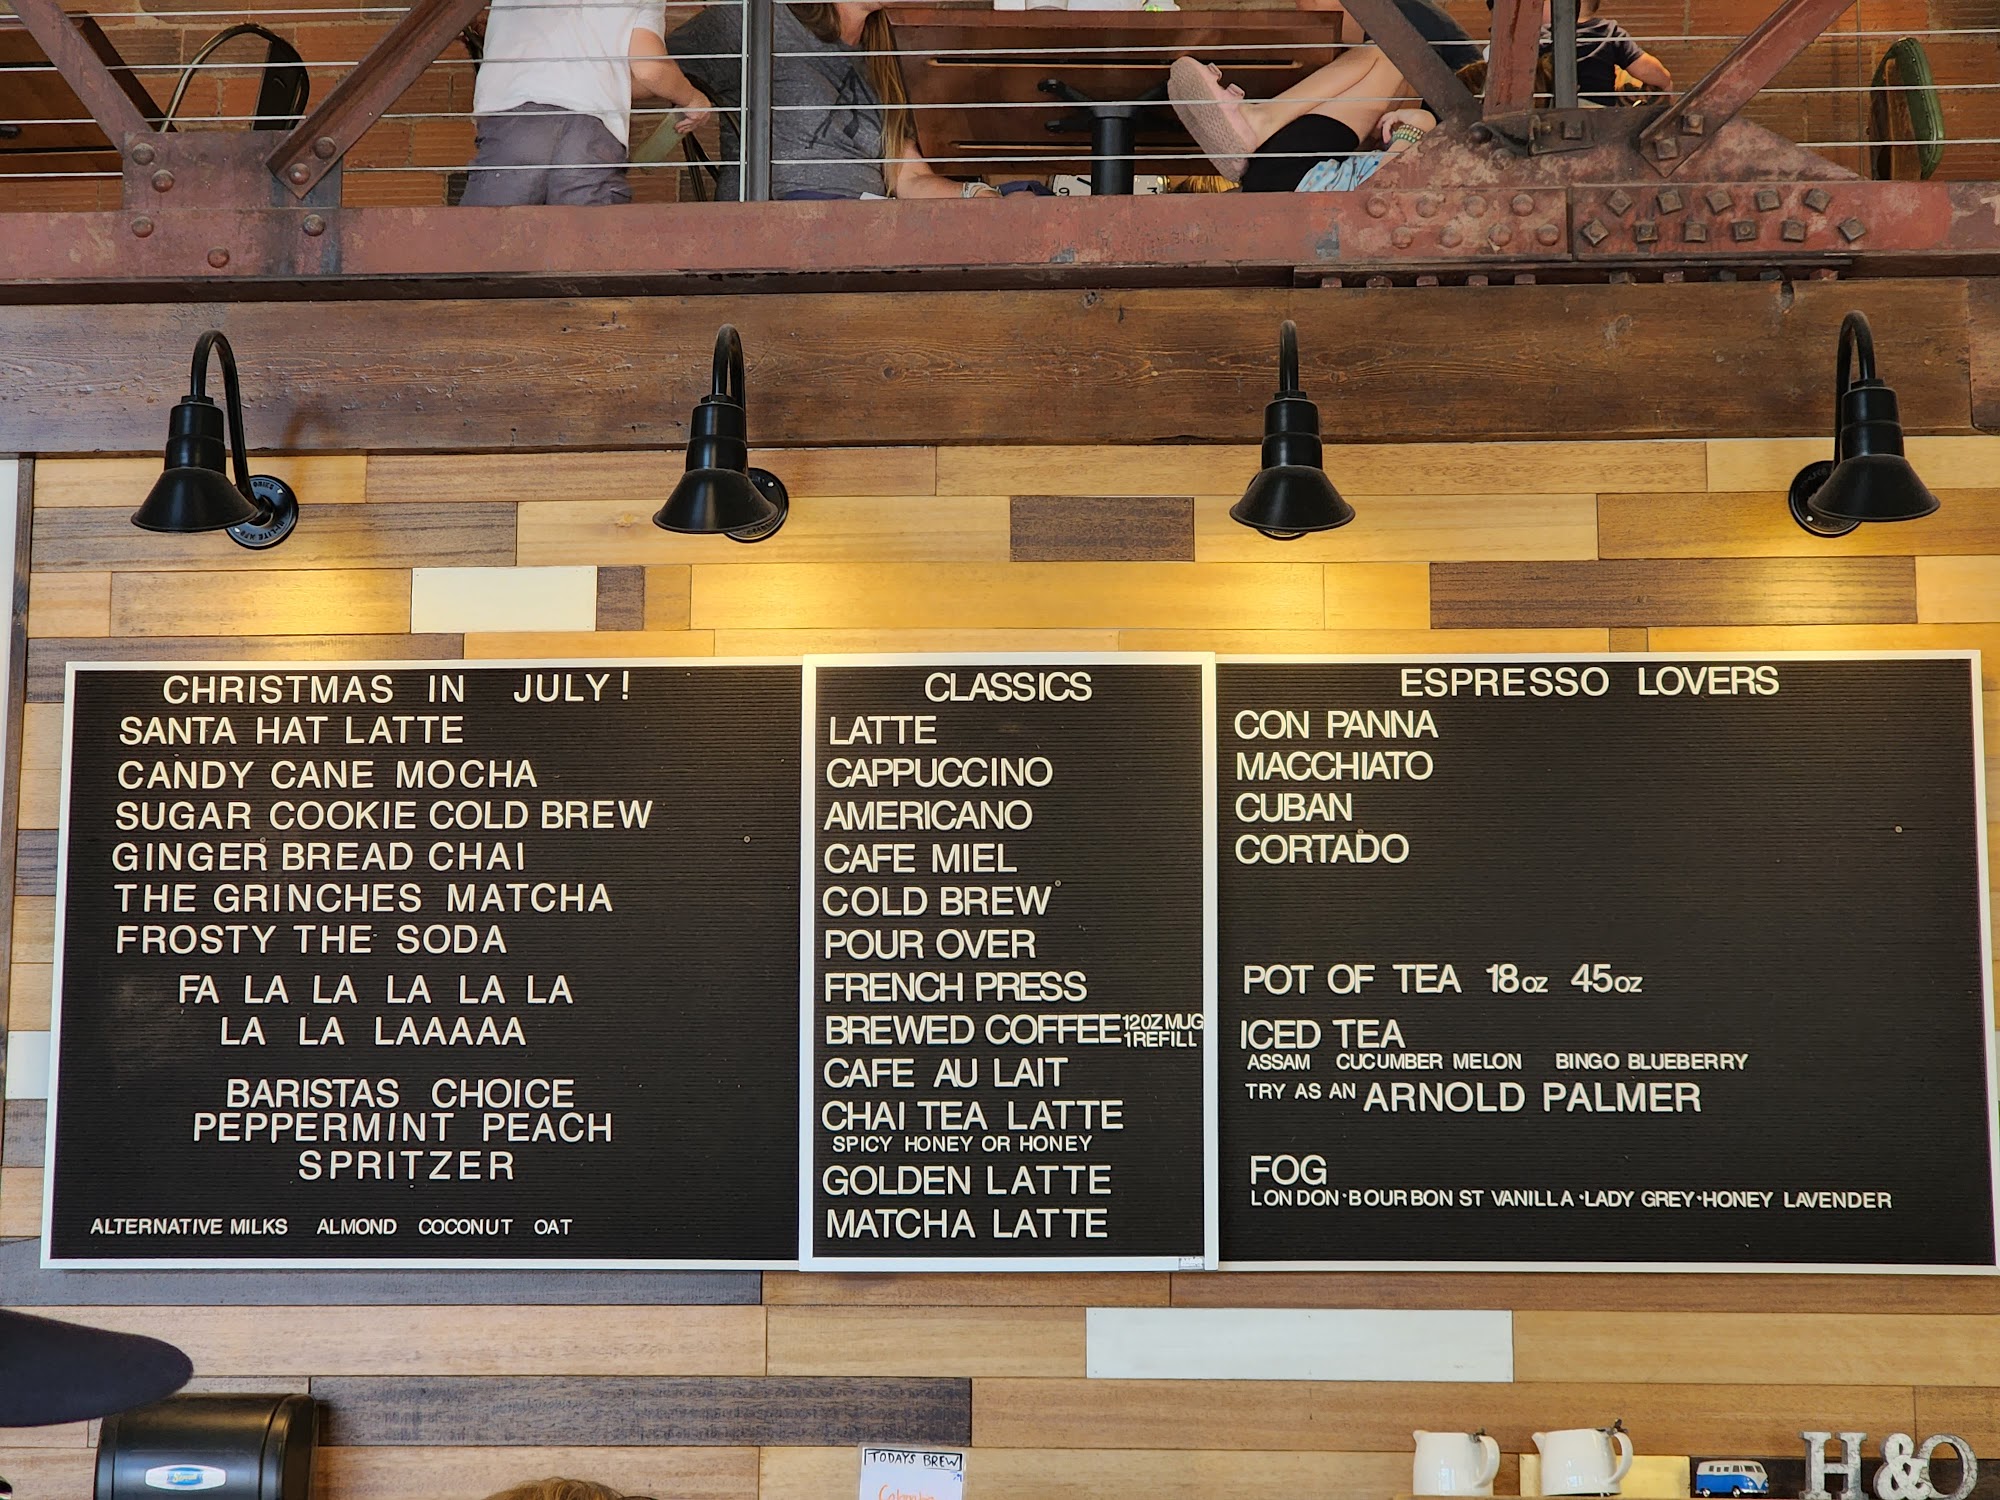 CHRISTMAS IN JULY!
SANTA HAT LATTE
CANDY CANE MOCHA
SUGAR COOKIE COLD BREW
GINGER BREAD CHAI
THE GRINCHES MATCHA
FROSTY THE SODA
FA LA LA LA LA LA
LA LA LAAAAA
BARISTAS CHOICE
PEPPERMINT PEACH
SPRITZER
ALTERNATIVE MILKS ALMOND COCONUT OAT
CLASSICS
LATTE
CAPPUCCINO
AMERICANO
CAFE MIEL
COLD BREW
POUR OVER
FRENCH PRESS
BREWED COFFEE 12OZ MUG
1 REFILL
CAFE AU LAIT
CHAI TEA LATTE
SPICY HONEY OR HONEY
GOLDEN LATTE
MATCHA LATTE
ESPRESSO LOVERS
CON PANNA
MACCHIATO
CUBAN
CORTADO
POT OF TEA 18oz 45oz
ICED TEA
ASSAM CUCUMBER MELON BINGO BLUEBERRY
TRY AS AN ARNOLD PALMER
FOG
LONDON·BOURBON ST VANILLA·LADY GREY·HONEY LAVENDER
TODAYS BREW
H&O
9 3